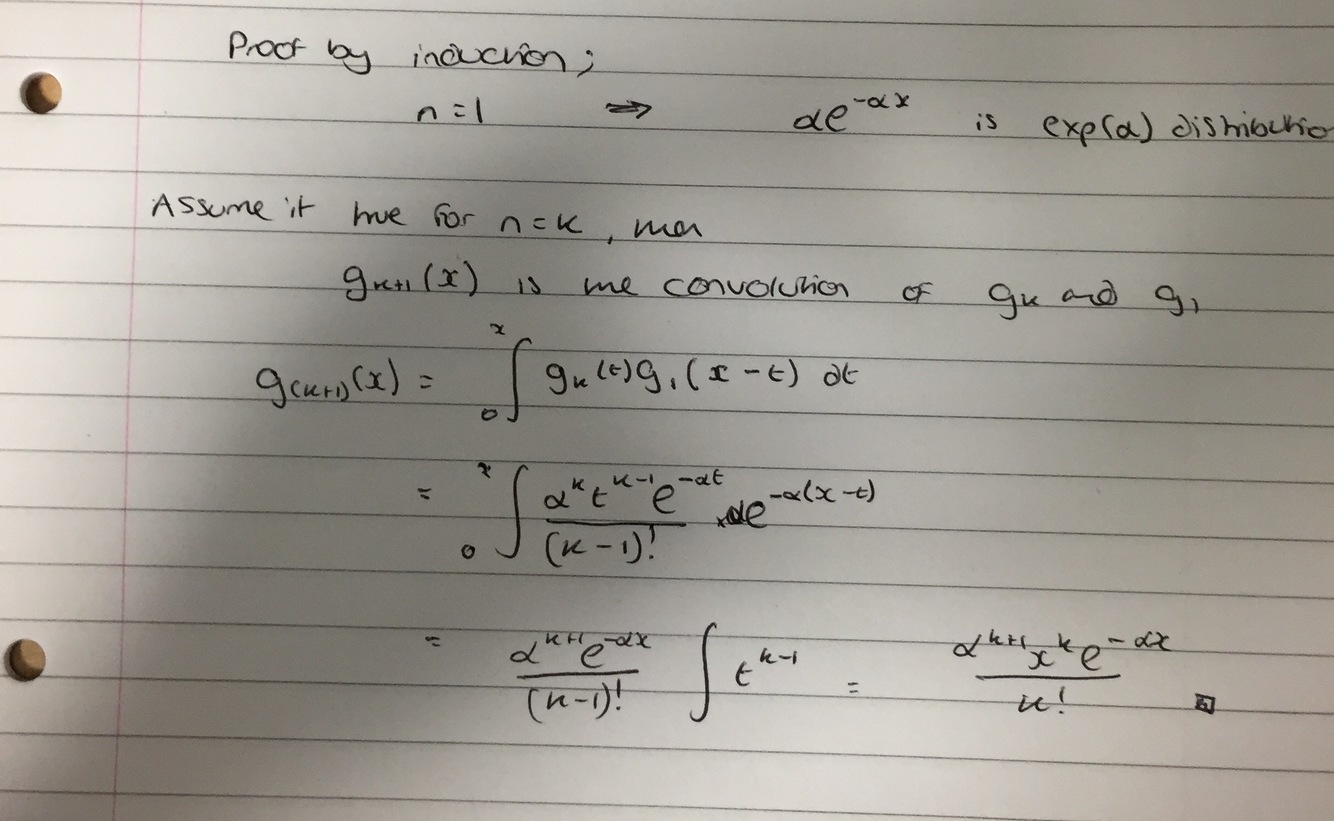 Proof by induction;
n=1 ⇒ αe^{-αx} is exp(α) distributio
Assume it true for n=k, then
g_{k+1}(x) is the convolution of g_k and g_1
g_{(k+1)}(x) = ∫_0^x g_k(t)g_1(x-t) dt
= ∫_0^x \frac{α^k t^{k-1} e^{-αt}}{(k-1)!} × αe^{-α(x-t)}
= \frac{α^{k+1} e^{-αx}}{(k-1)!} ∫ t^{k-1} = \frac{α^{k+1} x^k e^{-αx}}{k!} □